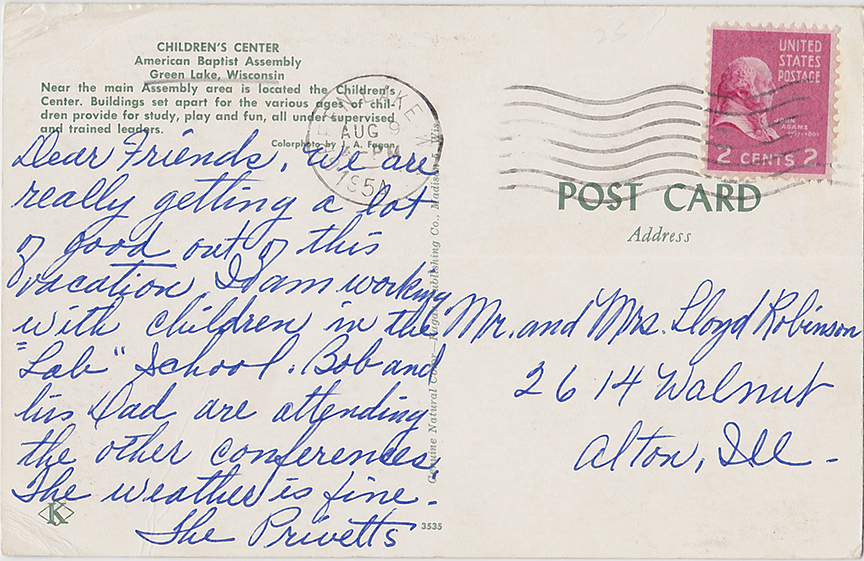 CHILDREN'S CENTER
American Baptist Assembly
Green Lake, Wisconsin
Near the main Assembly area is located the Children's
Center. Buildings set apart for the various ages of chil-
dren provide for study, play and fun, all under supervised
and trained leaders.
Colorphoto by J. A. Fagan
Dear Friends, We are
really getting a lot
of good out of this
vacation I am working
with children in the
"Lab" School. Bob and
his Dad are attending
the other conferences.
The weather is fine.
The Privetts
K
3535
Genuine Natural Color Publishing Co., Madison 5, Wis.
LAKE
AUG
9
PM
1954
UNITED
STATES
POSTAGE
JOHN
ADAMS
1797-1801
2 CENTS 2
POST CARD
Address
Mr. and Mrs. Lloyd Robinson
2614 Walnut
Alton, Ill.